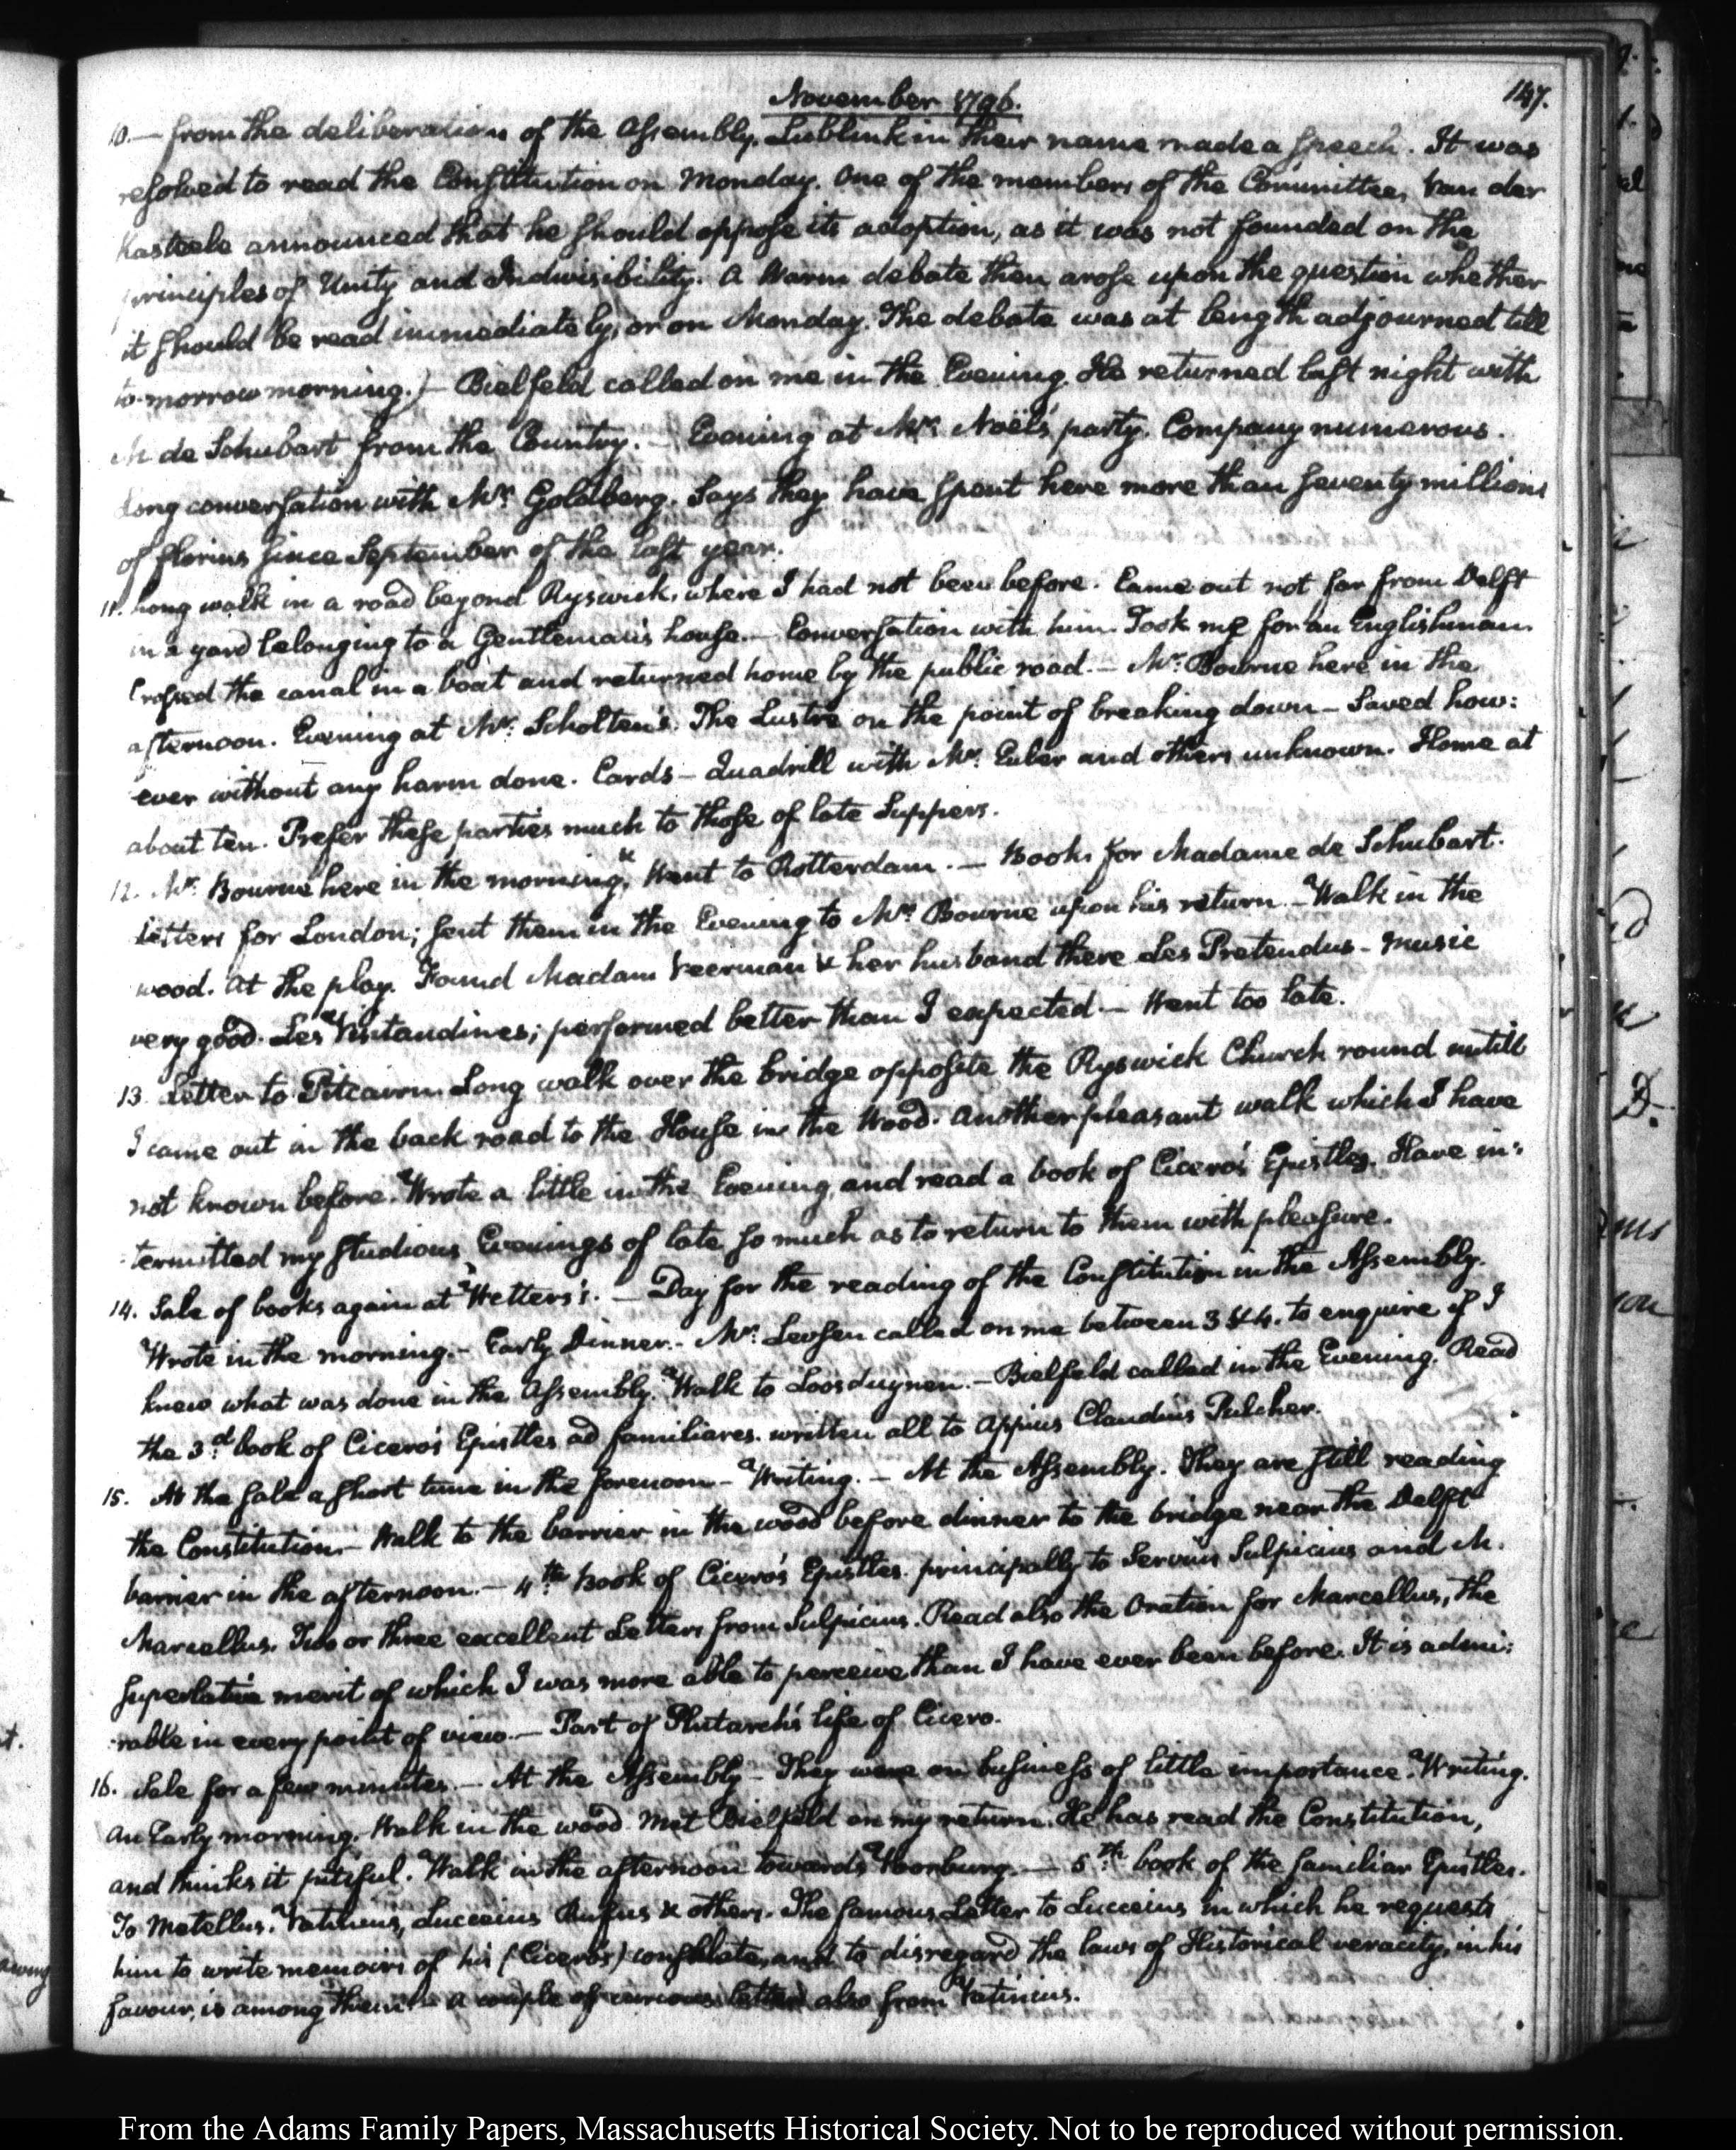 November 1796.
147.
10.— from the deliberations of the Assembly. Lublink in their name made a speech. It was
resolved to read the Constitution on Monday. One of the members of the Committee, Van der
Kasteele announced that he should oppose its adoption, as it was not founded on the
principles of Unity and Indivisibility. A Warm debate then arose upon the question whether
it should be read immediately, or on Monday. The debate was at length adjourned till
to-morrow morning.)— Bielfeld called on me in the Evening. He returned last night with
M de Schubart from the Country.— Evening at Mr. Noël's party. Company numerous.
Long conversation with Mr. Goldberg. Says they have spent here more than seventy millions
of florins since September of the last year.
11. Long walk in a road beyond Ryswick, where I had not been before. Came out not far from Delft
in a yard belonging to a Gentleman's house.— Conversation with him. Took me for an Englishman.
Crossed the canal in a boat and returned home by the public road.— Mr. Bourne here in the
afternoon. Evening at Mr. Scholten's. The Lustre on the point of breaking down— Saved how:
ever without any harm done. Cards— Quadrill with Mr. Euler and others unknown. Home at
about ten. Prefer these parties much to those of late Suppers.
12. Mr. Bourne here in the morning, & Went to Rotterdam.— Books for Madame de Schubart.
Letters for London; sent them in the Evening to Mr. Bourne upon his return.— Walk in the
wood. At the play. Found Madam Veerman & her husband there Les Pretendus— music
very good. Les Visitandines; performed better than I expected.— Went too late.
13. Letter to Pitcairn. Long walk over the bridge opposite the Ryswick Church round untill
I came out in the back road to the House in the Wood. Another pleasant walk which I have
not known before. Wrote a little in the Evening, and read a book of Cicero's Epistles. Have in:
:termitted my studious Evenings of late so much as to return to them with pleasure.
14. Sale of books again at Wetters's.— Day for the reading of the Constitution in the Assembly.
Wrote in the morning.— Early Dinner.— Mr. Levsen called on me between 3 & 4. to enquire if I
knew what was done in the Assembly. Walk to Loosduynen.— Bielfeld called in the Evening. Read
the 3.d book of Cicero's Epistles ad familiares. written all to Appius Claudius Pulcher.
15. At the sale a short time in the forenoon— Writing.— At the Assembly. They are still reading
the Constitution.— Walk to the barrier in the wood before dinner to the bridge near the Delft
barrier in the afternoon.— 4.th book of Cicero's Epistles. principally to Servius Sulpicius and M.
Marcellus. Two or three excellent Letters from Sulpicius. Read also the Oration for Marcellus, the
superlative merit of which I was more able to perceive than I have ever been before. It is admi:
:rable in every point of view.— Part of Plutarch's life of Cicero.
16. Sale for a few minutes.— At the Assembly— They were on business of little importance. Writing.
An Early morning. Walk in the wood. Met Bielfeld on my return. He has read the Constitution,
and thinks it pitiful. Walk in the afternoon towards Voorburg.— 5.th book of the familiar Epistles.
To Metellus. Vatinius, Lucceius Rufus & others. The famous Letter to Lucceius in which he requests
him to write memoirs of his (Cicero's) consulate, and to disregard the laws of Historical veracity, in his
favour, is among them.— a couple of curious letters also from Vatinius.
From the Adams Family Papers, Massachusetts Historical Society. Not to be reproduced without permission.